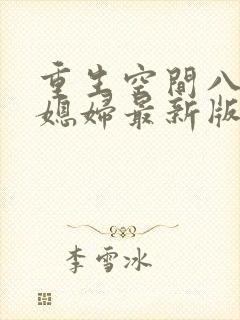 重生空間八
媳婦最新版
李雪冰